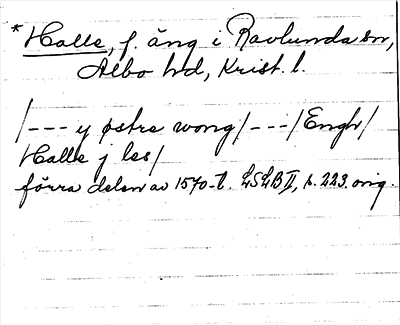 *Halle, f. äng i Ravlunda sn,
Albo hd, Krist. l.
/--- y østre wong/---/Engh/
Halle j les/
förra delen av 1570-t. LSLB II, s. 223. orig.